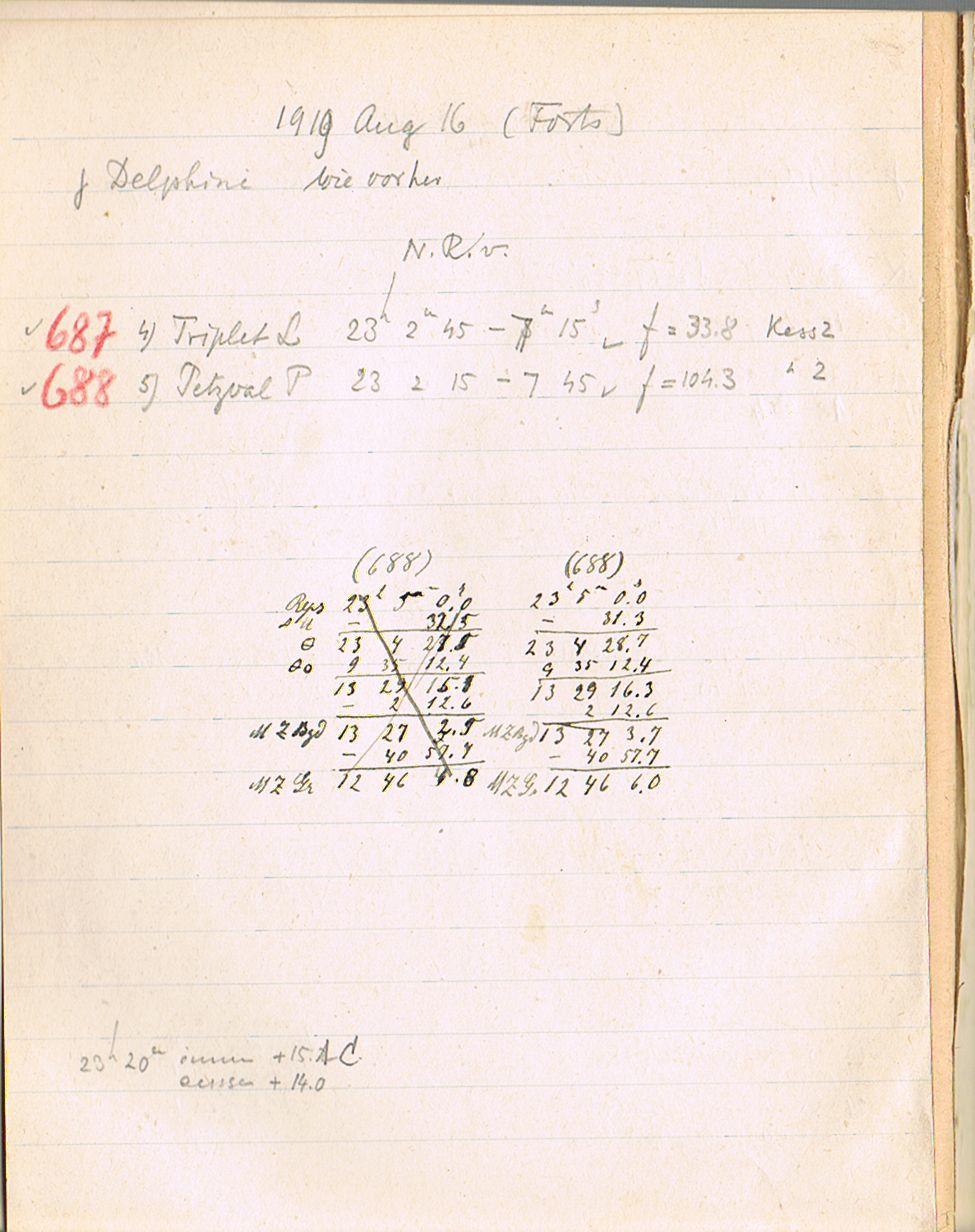 1919 Aug 16 (Forts)
γ Delphini wie vorher
N. R. v.
✓ 687 4) Triplet L 23ʰ 2ᵐ 45 – 7ᵐ 15ˢ ✓ f = 33.8 Kass 2
✓ 688 5) Petzval P 23 2 15 – 7 45 ✓ f = 104.3 " 2
(688) (688)
Reps 23ʰ 5ᵐ 0.ˢ0 23ʰ 5ᵐ 0.ˢ0
– 32.5 – 31.3
θ 23 4 27.5 23 4 28.7
θo 9 35 12.4 9 35 12.4
13 29 15.1 13 29 16.3
– 2 12.6 2 12.6
MZBgd 13 27 2.5 MZBgd 13 27 3.7
– 40 57.7 – 40 57.7
MZGr 12 46 4.8 MZGr 12 46 6.0
23ʰ 20ᵐ innen +15.1 C
aussen +14.0